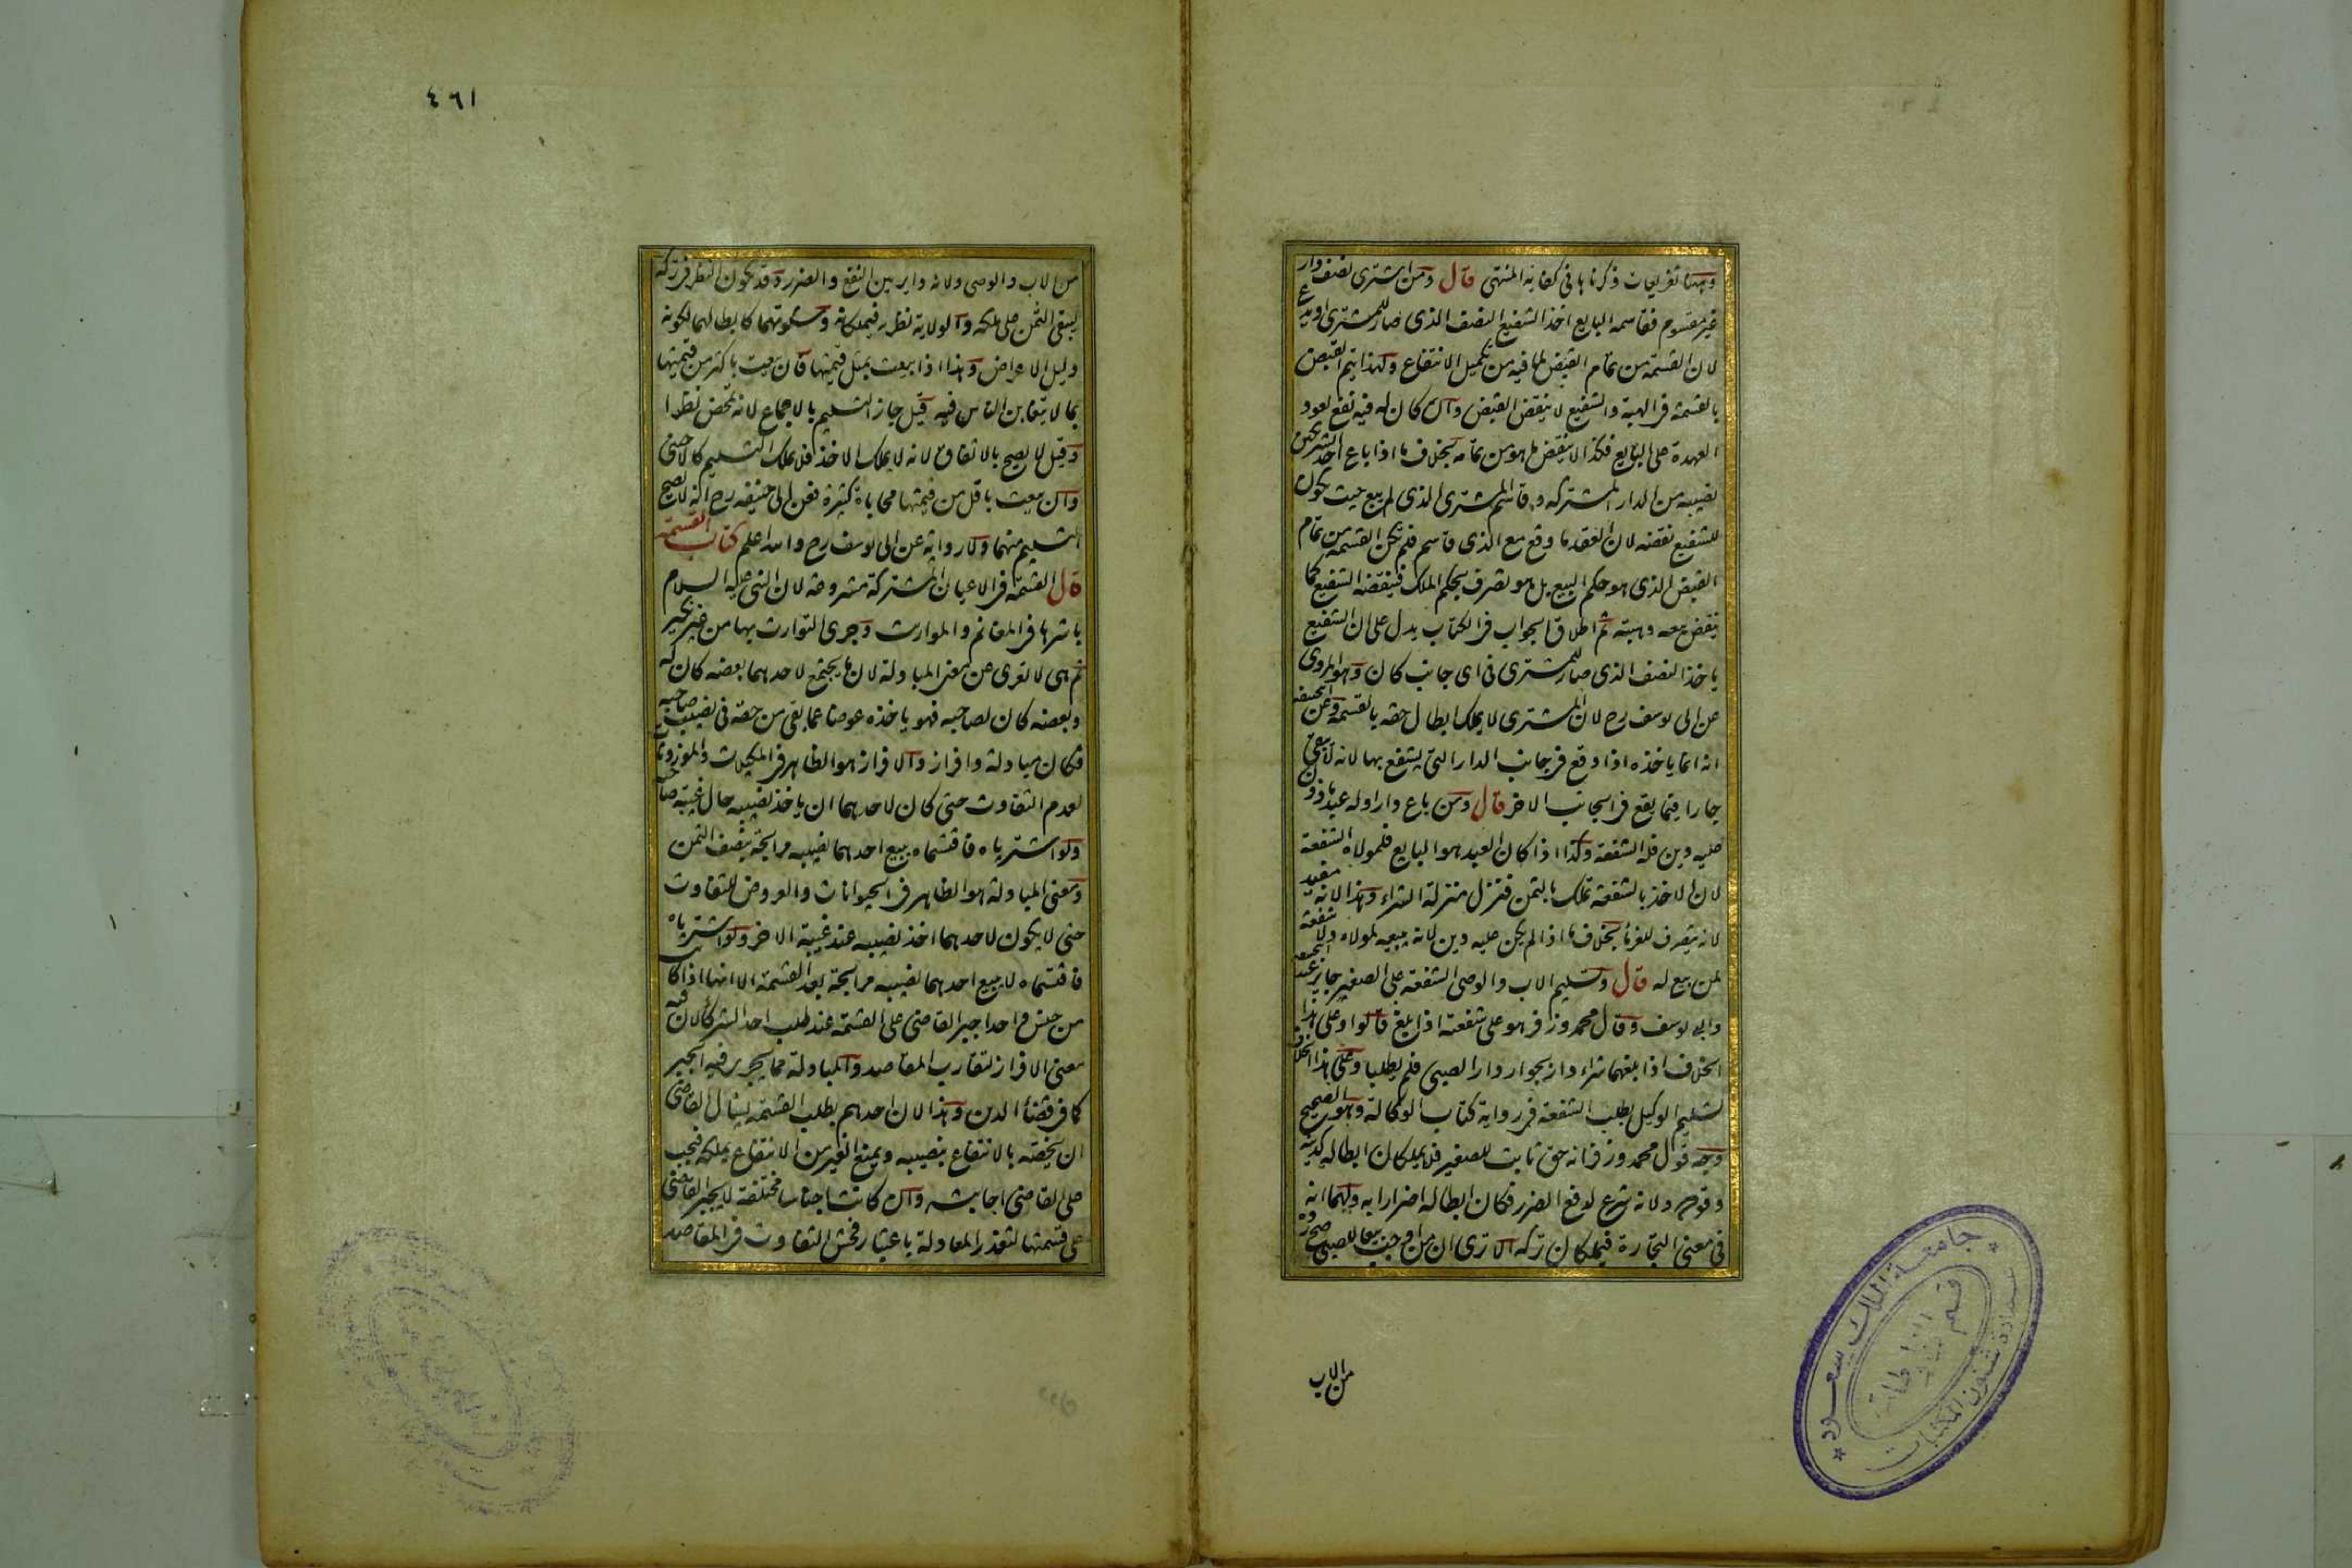 وههنا تفريعات ذكرناها في كفاية المنتهى قال ومن اشترى نصف دار
غير مقسوم فقاسمه البايع اخذ الشفيع النصف الذي صار للمشتري او يدع
لان القسمة من تمام القبض لما فيه من تكميل الانتفاع ولهذا يتم القبض
بالقسمة في الهبة والشفيع لا ينقض القبض وان كان له فيه نفع لعود
العهدة على البايع فكذا لا ينقض ما هو من تمامه بخلاف ما اذا باع احد الشريكين
نصيبه من الدار المشتركة وقاسم المشتري الذي لم يبع حيث يكون
للشفيع نقضه لان العقد ما وقع مع الذي قاسم فلم تكن القسمة من تمام
القبض الذي هو حكم البيع بل هو تصرف بحكم الملك فينقضه الشفيع كما
ينقض بيعه وهبته ثم اطلاق الجواب في الكتاب يدل على ان الشفيع
ياخذ النصف الذي صار للمشتري في اي جانب كان وهو المروي
عن ابي يوسف رح لان المشتري لا يملك ابطال حقه بالقسمة وعن ابي حنيفه
انه انما ياخذه اذا وقع في جانب الدار التي يشفع بها لانه لا يبقى
جارا فيما يقع في الجانب الاخر قال ومن باع دارا وله عبد ماذون
عليه دين فله الشفعة وكذا اذا كان العبد هو البايع فلمولاه الشفعة
لان الاخذ بالشفعة تملك بالثمن فنزل منزلة الشراء وهذا لانه مفيد
لانه يتصرف للغرماء بخلاف ما اذا لم يكن عليه دين لانه يبيعه لمولاه ولا شفعة
لمن بيع له قال وتسليم الاب والوصي الشفعة على الصغير جايز عند ابي حنيفه
وابي يوسف وقال محمد وزفر هو على شفعته اذا بلغ قالوا وعلى هذا
الخلاف اذا بلغهما شراء دار بجوار دار الصبي فلم يطلبا وعلى هذا الخلاف
تسليم الوكيل بطلب الشفعة في رواية كتاب الوكالة وهو الصحيح
وجه قول محمد وزفر انه حق ثابت للصغير فلا يملكان ابطاله كديته
وقوده ولانه شرع لدفع الضرر فكان ابطاله اضرارا به ولهما انه
في معنى التجارة فيملكان تركه الا ترى ان من اوجب بيعا للصبي صح رده
من الاب
٤٦١
من الاب والوصي ولانه داير بين النفع والضرر وقد يكون النظر في تركه
ليبقى الثمن على ملكه والولاية نظرية فيملكانه وسكوتهما كابطالهما لكونه
دليل الاعراض وهذا اذا بيعت بمثل قيمتها فان بيعت باكثر من قيمتها
بما لا يتغابن الناس فيه قيل جاز التسليم بالاجماع لانه تمحض نظرا
وقيل لا يصح بالاتفاق لانه لا يملك الاخذ فلا يملك التسليم كالاجنبي
وان بيعت باقل من قيمتها محاباة كثيرة فعن ابي حنيفه رح انه لا يصح
التسليم منهما ولا رواية عن ابي يوسف رح والله اعلم كتاب القسمة
قال القسمة في الاعيان المشتركة مشروعة لان النبي عليه السلام
باشرها في المغانم والمواريث وجرى التوارث بها من غير نكير
ثم هي لا تعرى عن معنى المبادلة لان ما يجتمع لاحدهما بعضه كان له
وبعضه كان لصاحبه فهو ياخذه عوضا عما بقي من حقه في نصيب صاحبه
فكان مبادلة وافراز والافراز هو الظاهر في المكيلات والموزونات
لعدم التفاوت حتى كان لاحدهما ان ياخذ نصيبه حال غيبة صاحبه
ولو اشترياه فاقتسماه يبيع احدهما نصيبه مرابحة بنصف الثمن
ومعنى المبادلة هو الظاهر في الحيوانات والعروض للتفاوت
حتى لا يكون لاحدهما اخذ نصيبه عند غيبة الاخر ولو اشترياه
فاقتسماه لا يبيع احدهما نصيبه مرابحة بعد القسمة الا انها اذا كانت
من جنس واحد اجبر القاضي على القسمة عند طلب احد الشركاء لان فيه
معنى الافراز لتقارب المقاصد والمبادلة مما يجري فيه الجبر
كما في قضاء الدين وهذا لان احدهم بطلب القسمة يسال القاضي
ان يخصه بالانتفاع بنصيبه ويمنع الغير من الانتفاع بملكه فيجب
على القاضي اجابته وان كانت اجناسا مختلفة لا يجبر القاضي
على قسمتها لتعذر المعادلة باعتبار فحش التفاوت في المقاصد
جامعة الملك سعود
عمادة شئون المكتبات
قسم المخطوطات